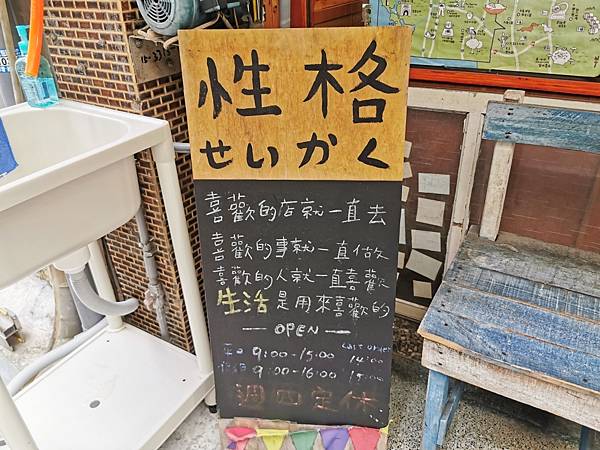 性格
せいかく
喜歡的店就一直去
喜歡的事就一直做
喜歡的人就一直喜歡
生活是用來喜歡的
— OPEN —
Last order
平日 9:00-15:00 14:00
9:00-16:00 15:00
週四定休